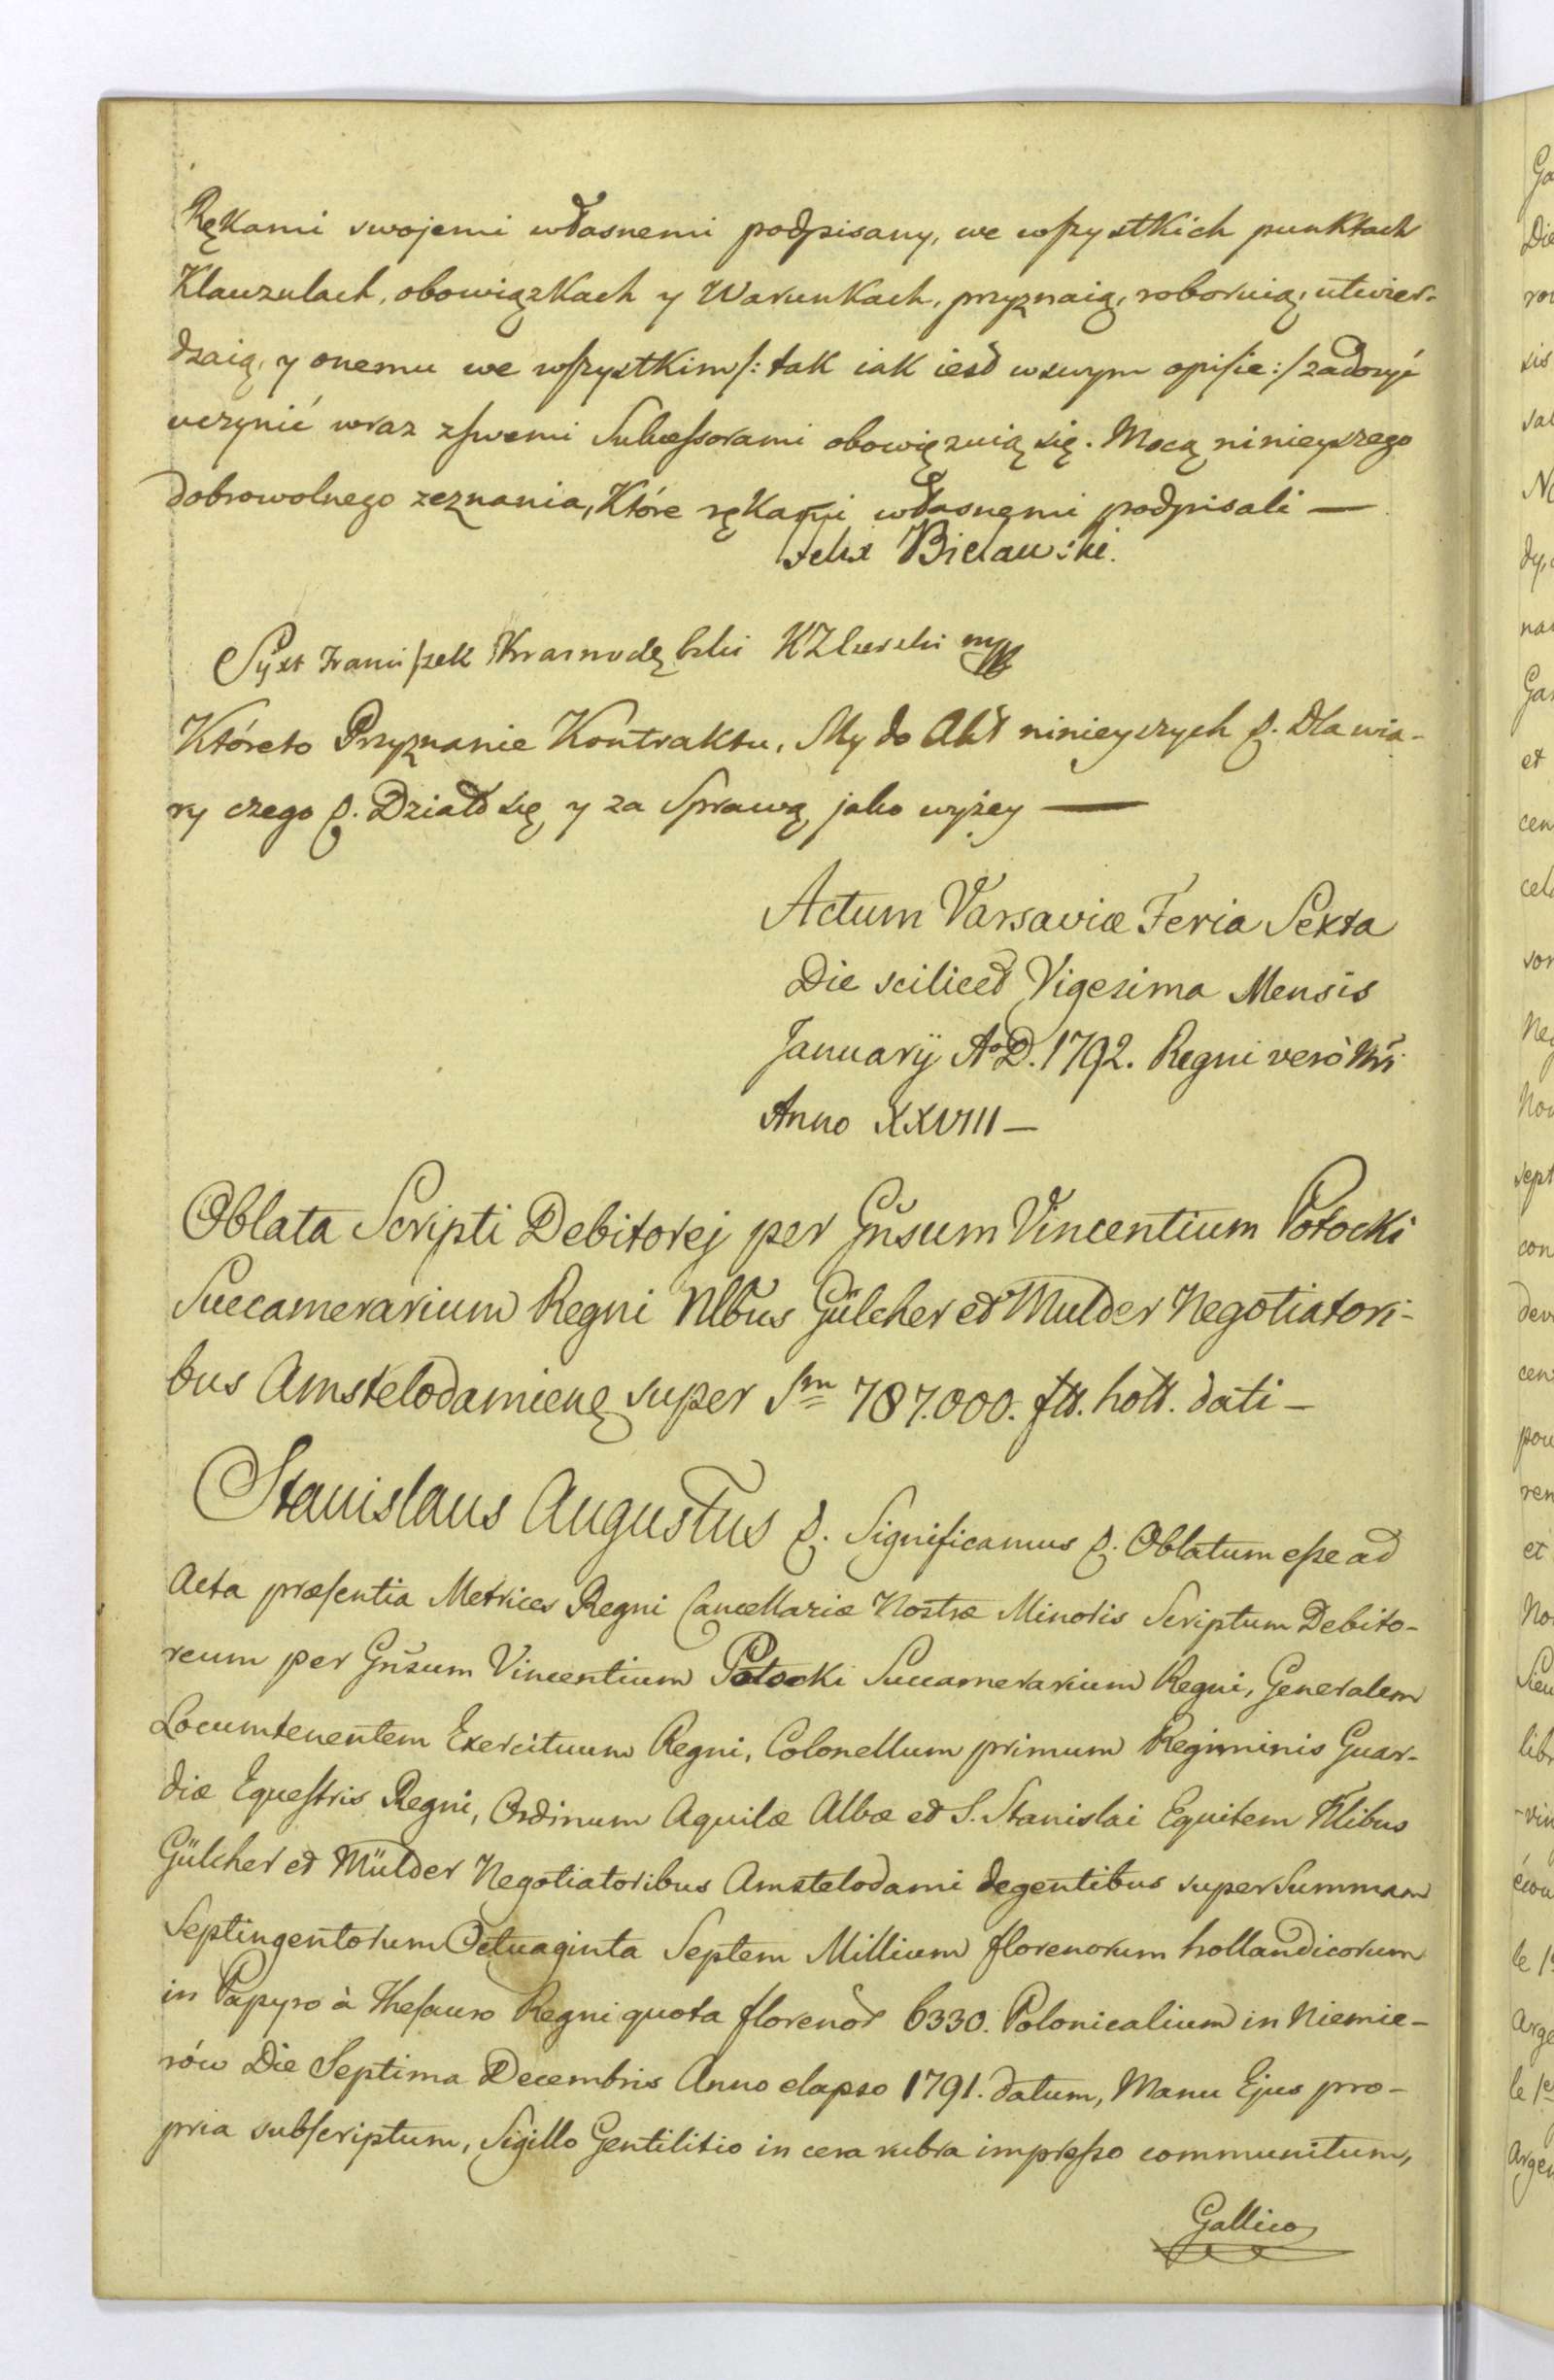 Rękami swojemi własnemi podpisany, we wszystkich punktach
Klauzulach, obowiązkach y Warunkach, przyznaią, roboruią, utwier-
dzaią, y onemu we wszystkim /: tak iak iest wswym opisie :/ zadosyć
uczynić wraz zswemi Sukcessorami obowięzuią się. Mocą ninieyszego
dobrowolnego zeznania, Które rękami własnemi podpisali —
Felix Bielawski.
Syxt Franciszek Krasnodębski mp
Któreto Przyznanie Kontraktu, My do Akt ninieyszych &. Dla wia-
ry czego &. Działo się y za Sprawą jako wyżey —
Actum Varsaviæ Feria Sexta
Die scilicet Vigesima Mensis
Januarij Aº D. 1792. Regni verò Nri
Anno XXVIII —
Oblata Scripti Debitorej per Gnsum Vincentium Potocki
Succamerarium Regni Nlbus Gülcher et Mulder Negotiatori-
bus Amstelodamienę super Sm 787.000. fll. holl. dati —
Stanislaus Augustus &. Significamus &. Oblatum esse ad
Acta præsentia Metrices Regni Cancellariæ Nostræ Minoris Scriptum Debito-
reum per Gnsum Vincentium Potocki Succamerarium Regni, Generalem
Locumtenentem Exercituum Regni, Colonellum primum Regiminis Guar-
diæ Equestris Regni, Ordinum Aquilæ Albæ et S. Stanislai Equitem Nlibus
Gülcher et Mülder Negotiatoribus Amstelodami degentibus super Summam
Septingentorum Octuaginta Septem Millium florenorum hollandicorum
in Papyro à Thesauro Regni quota florenor 6330. Polonicalium in Niemie-
rów Die Septima Decembris Anno elapso 1791. datum, Manu Ejus pro-
pria subscriptum, Sigillo Gentilitio in cera rubra impresso communitum,
Gallico